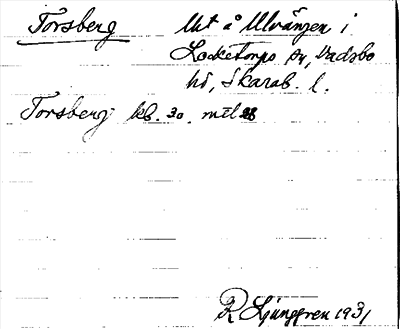 Torsberg Ut å Ulvängen i
Locketorps sn, Vadsbo
hd, Skarab. l.
Torsberg kb. 30. mtl
R Ljunggren 1931